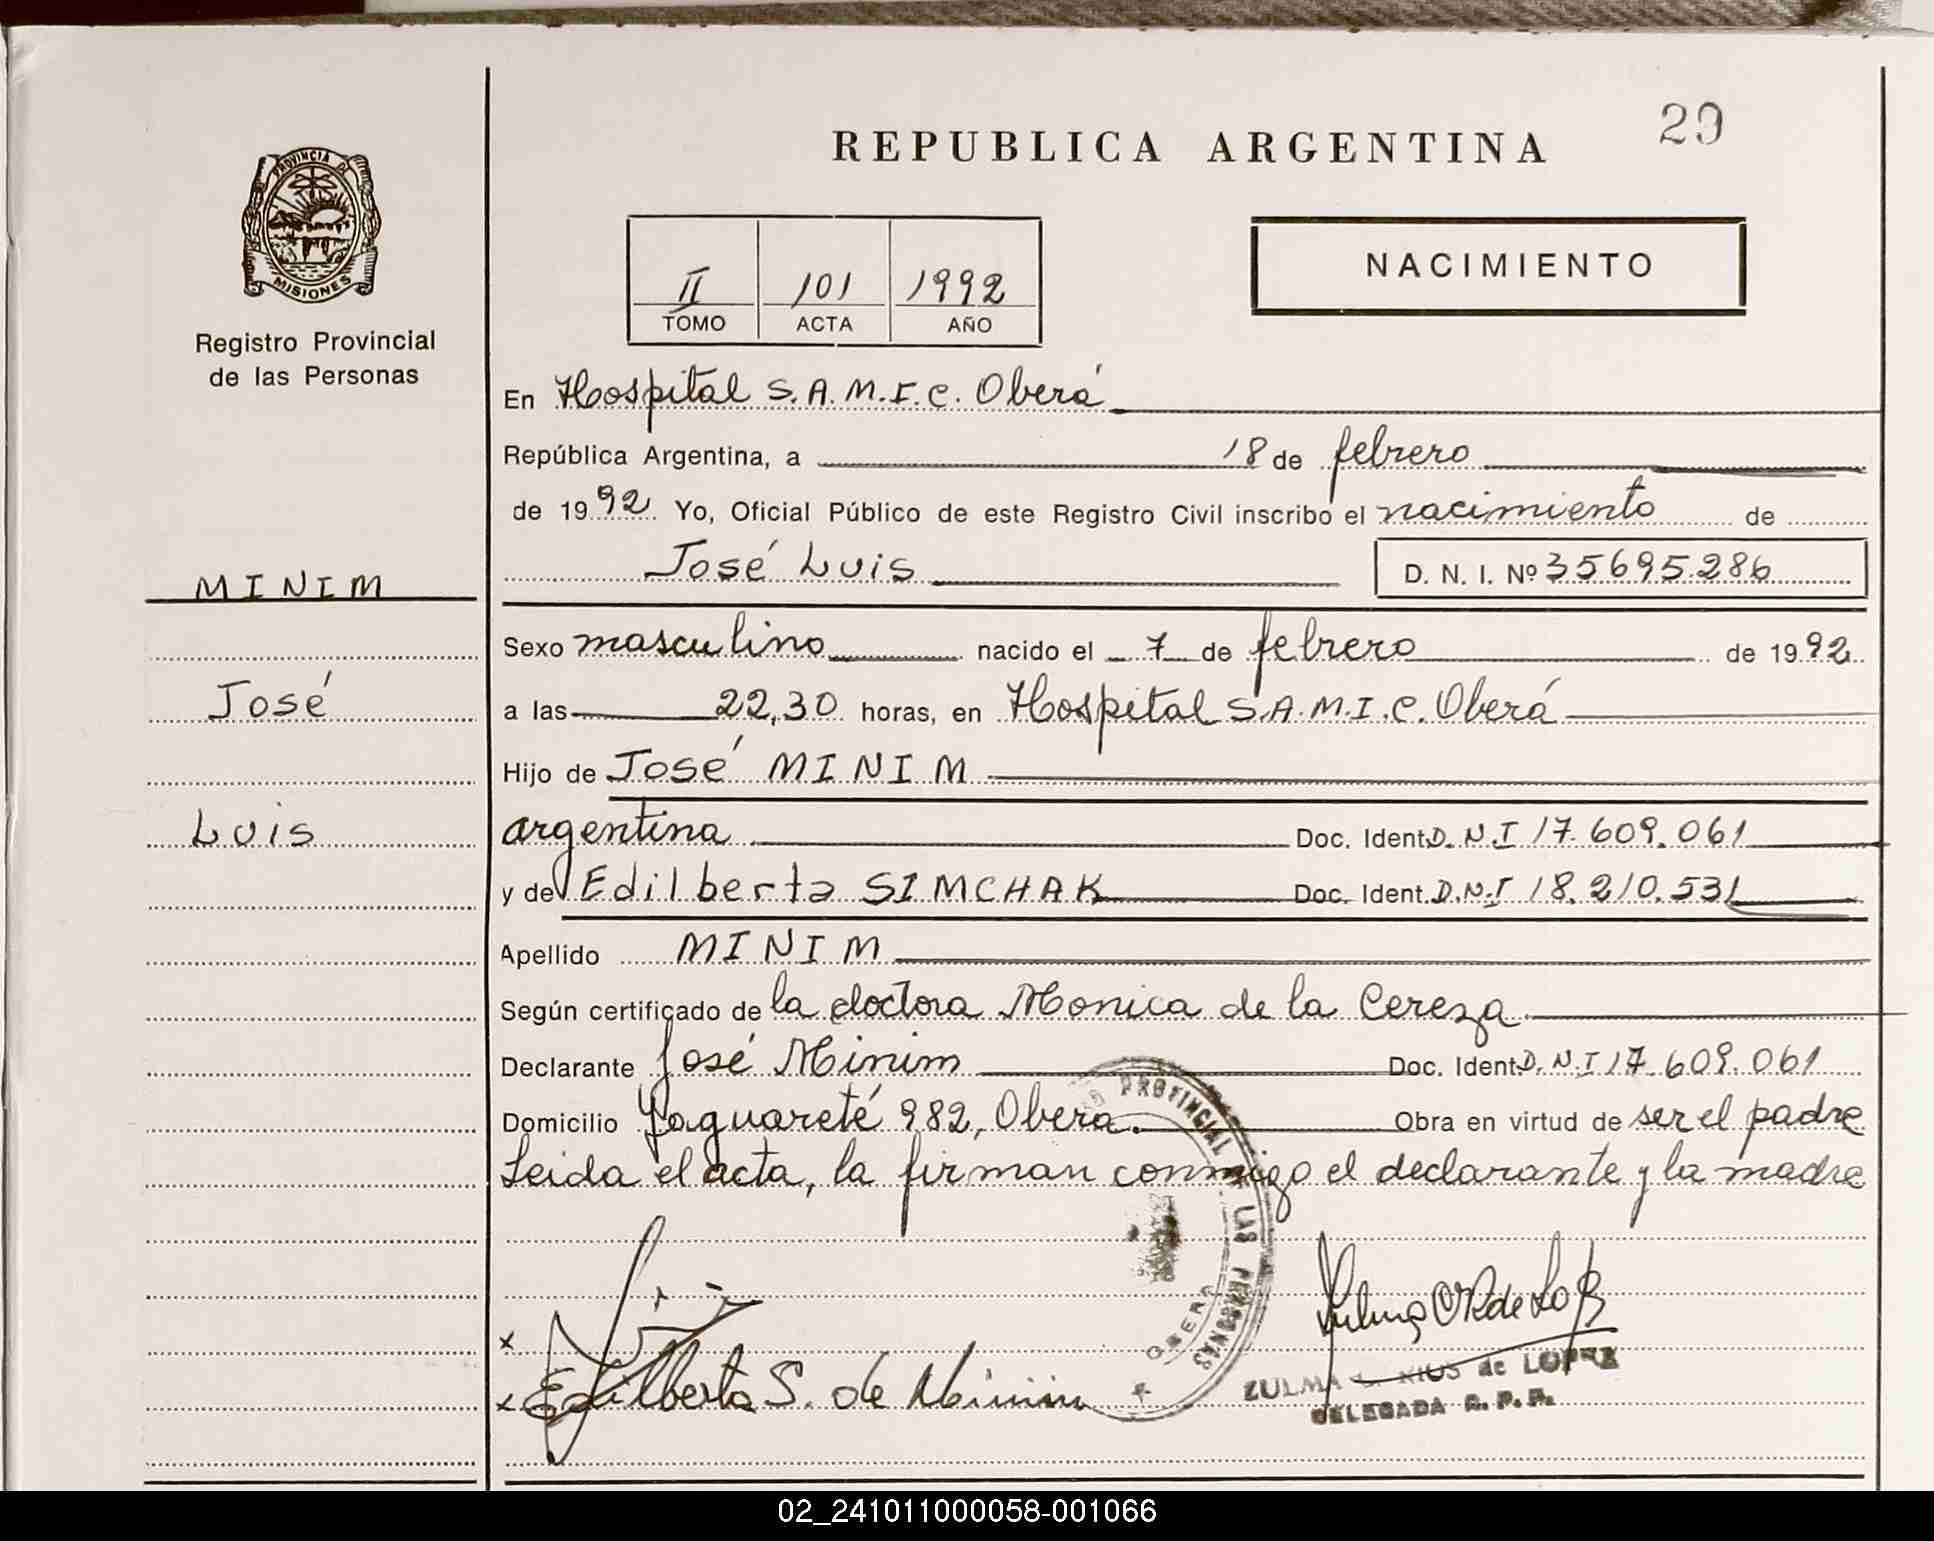 29
REPUBLICA ARGENTINA
PROVINCIA DE
MISIONES
Registro Provincial
de las Personas
II 101 1992
TOMO ACTA AÑO
NACIMIENTO
En Hospital S.A.M.I.C. Oberá
República Argentina, a 18 de febrero
de 1992 Yo, Oficial Público de este Registro Civil inscribo el nacimiento de
José Luis D. N. I. Nº 35695.286
MINIM
José
Luis
Sexo masculino nacido el 7 de febrero de 1992
a las 22,30 horas, en Hospital S.A.M.I.C. Oberá
Hijo de José MINIM
argentina Doc. Ident. D.N.I 17.609.061
y de Edilberta SIMCHAK Doc. Ident. D.N.I 18.210.531
Apellido MINIM
Según certificado de la doctora Monica de la Cereza
Declarante José Minim Doc. Ident. D.N.I 17.609.061
Domicilio Yaguareté 982, Oberá. Obra en virtud de ser el padre
Leida el acta, la firman conmigo el declarante y la madre
PROVINCIAL DE LAS PERSONAS
OBERA
x
x Edilberta S. de Minim
ZULMA de LOPEZ
DELEGADA R. P. P.
02_241011000058-001066